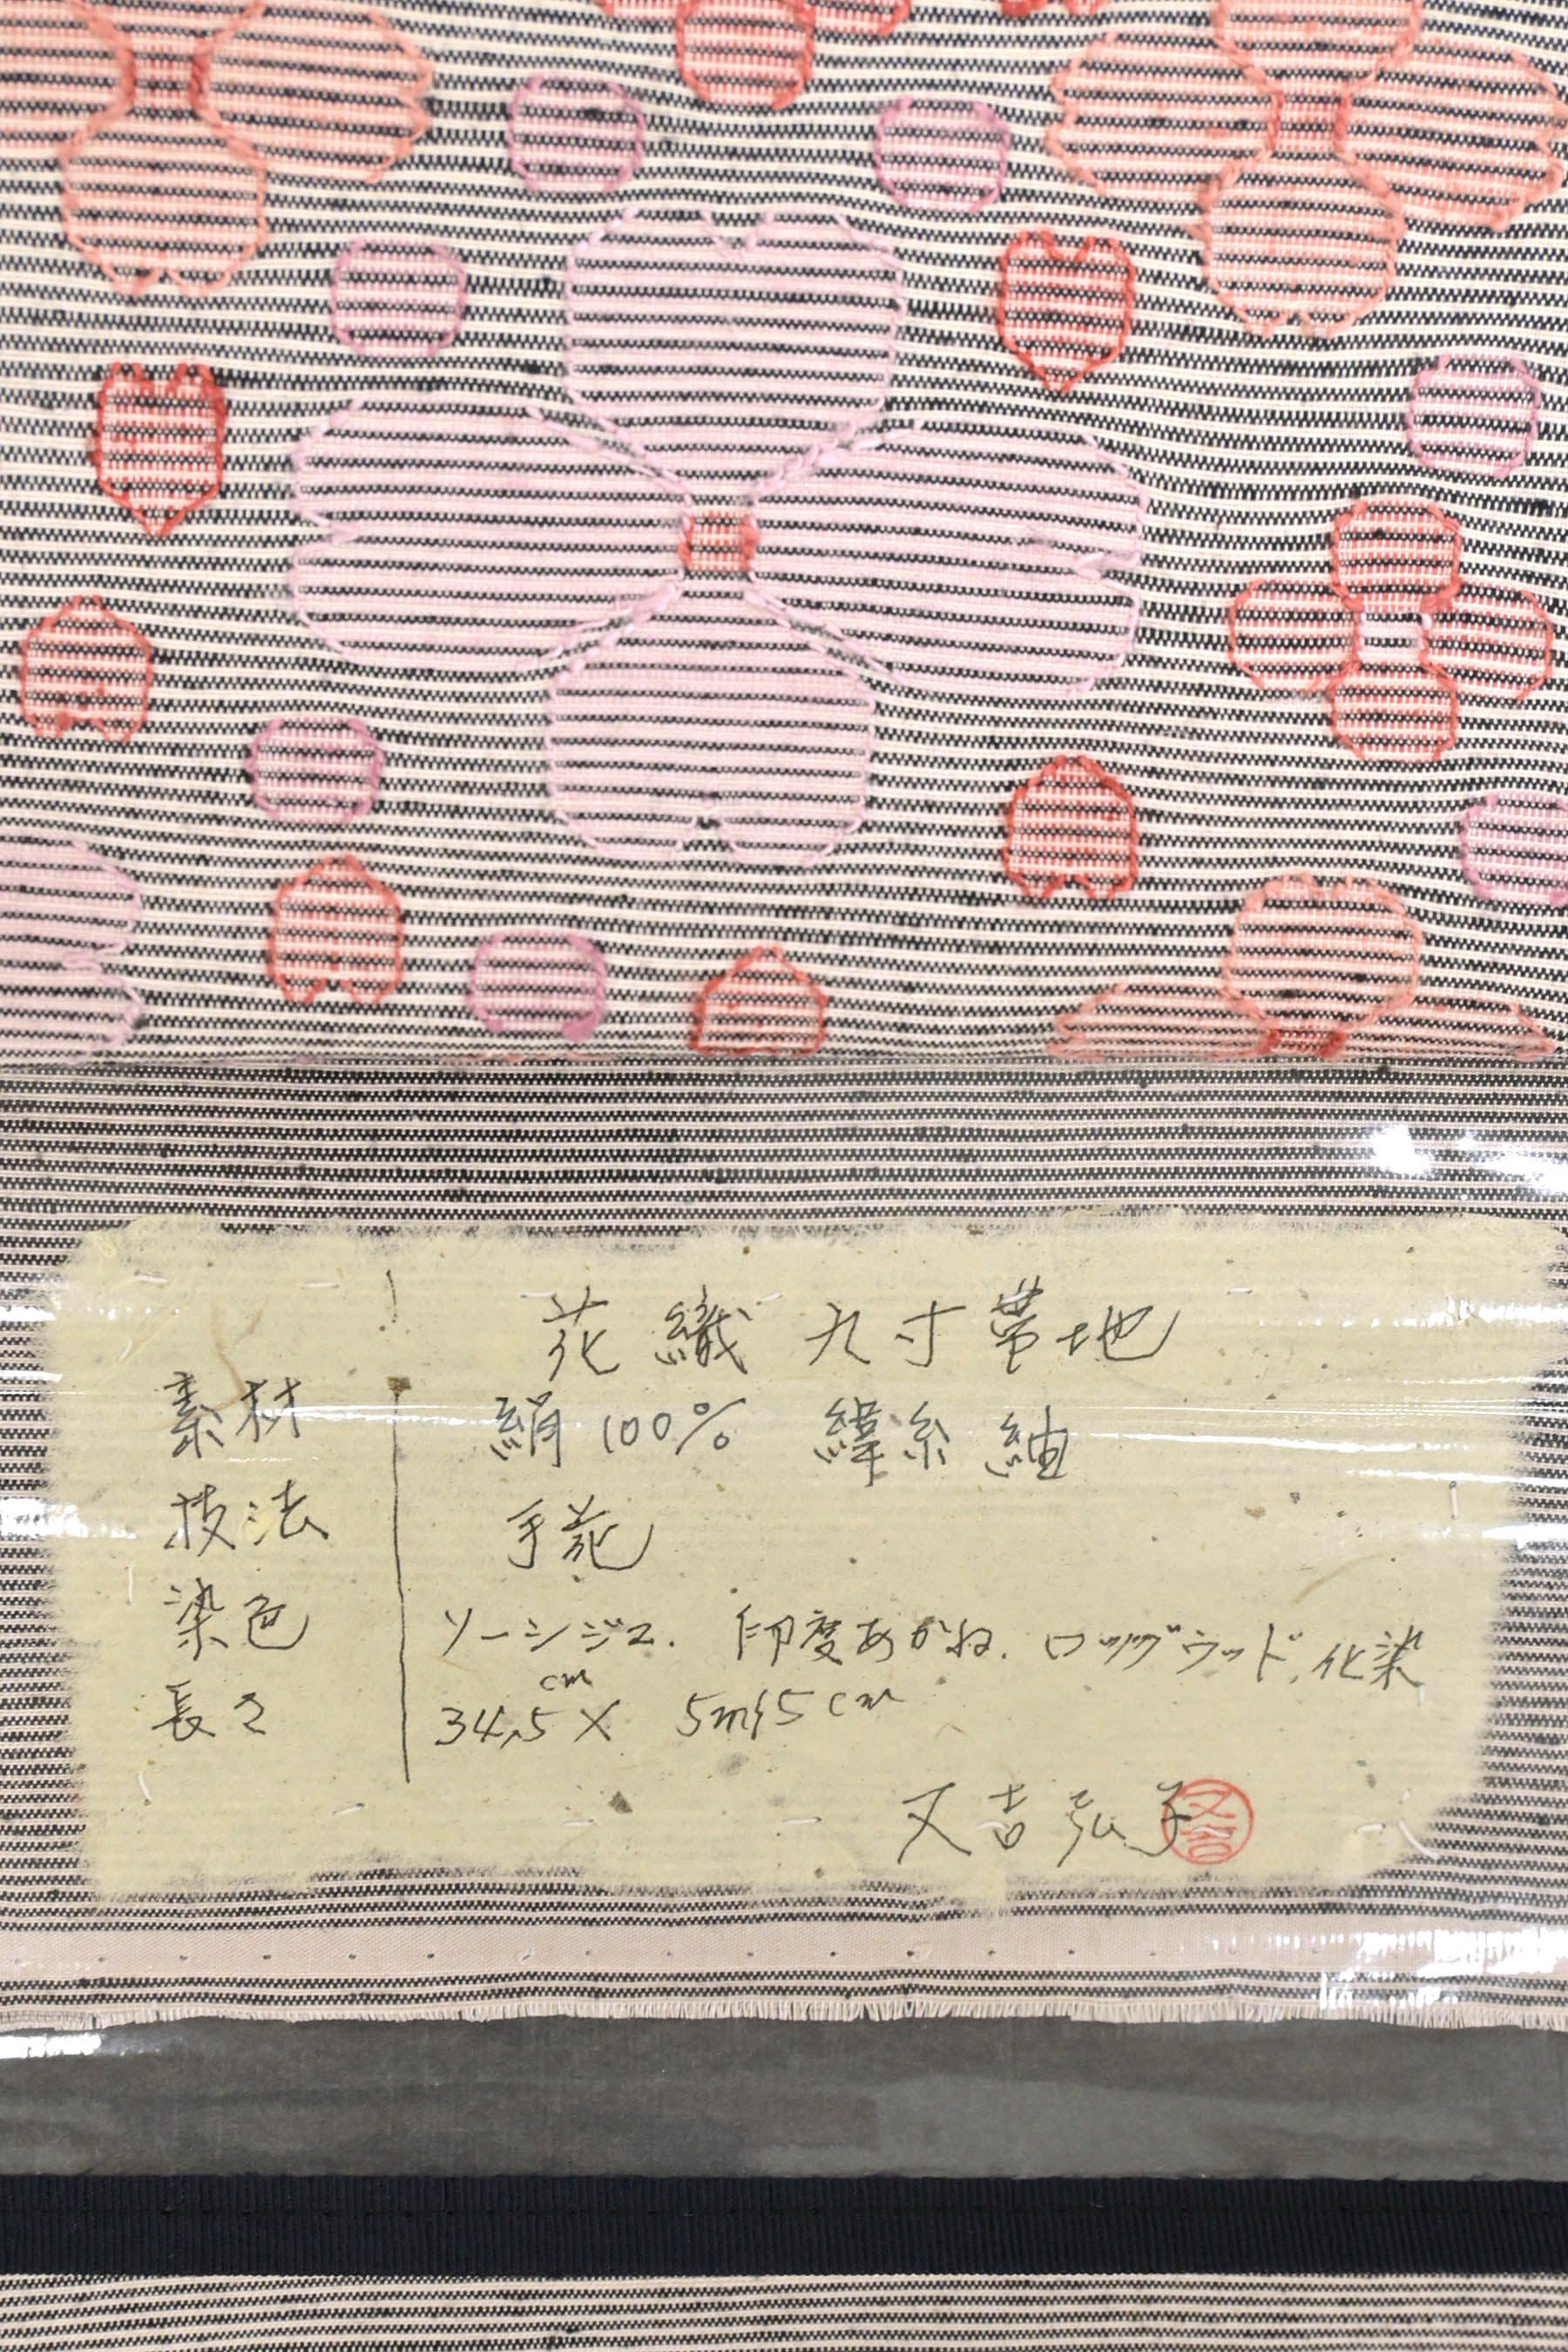 花織 九寸帯地
素材 絹100% 緯糸紬
技法 手花
染色 ソージジュ. 印度あかね. ロッグウッド. 化染
長さ 34.5cm × 5m15cm
又吉弘子
又吉